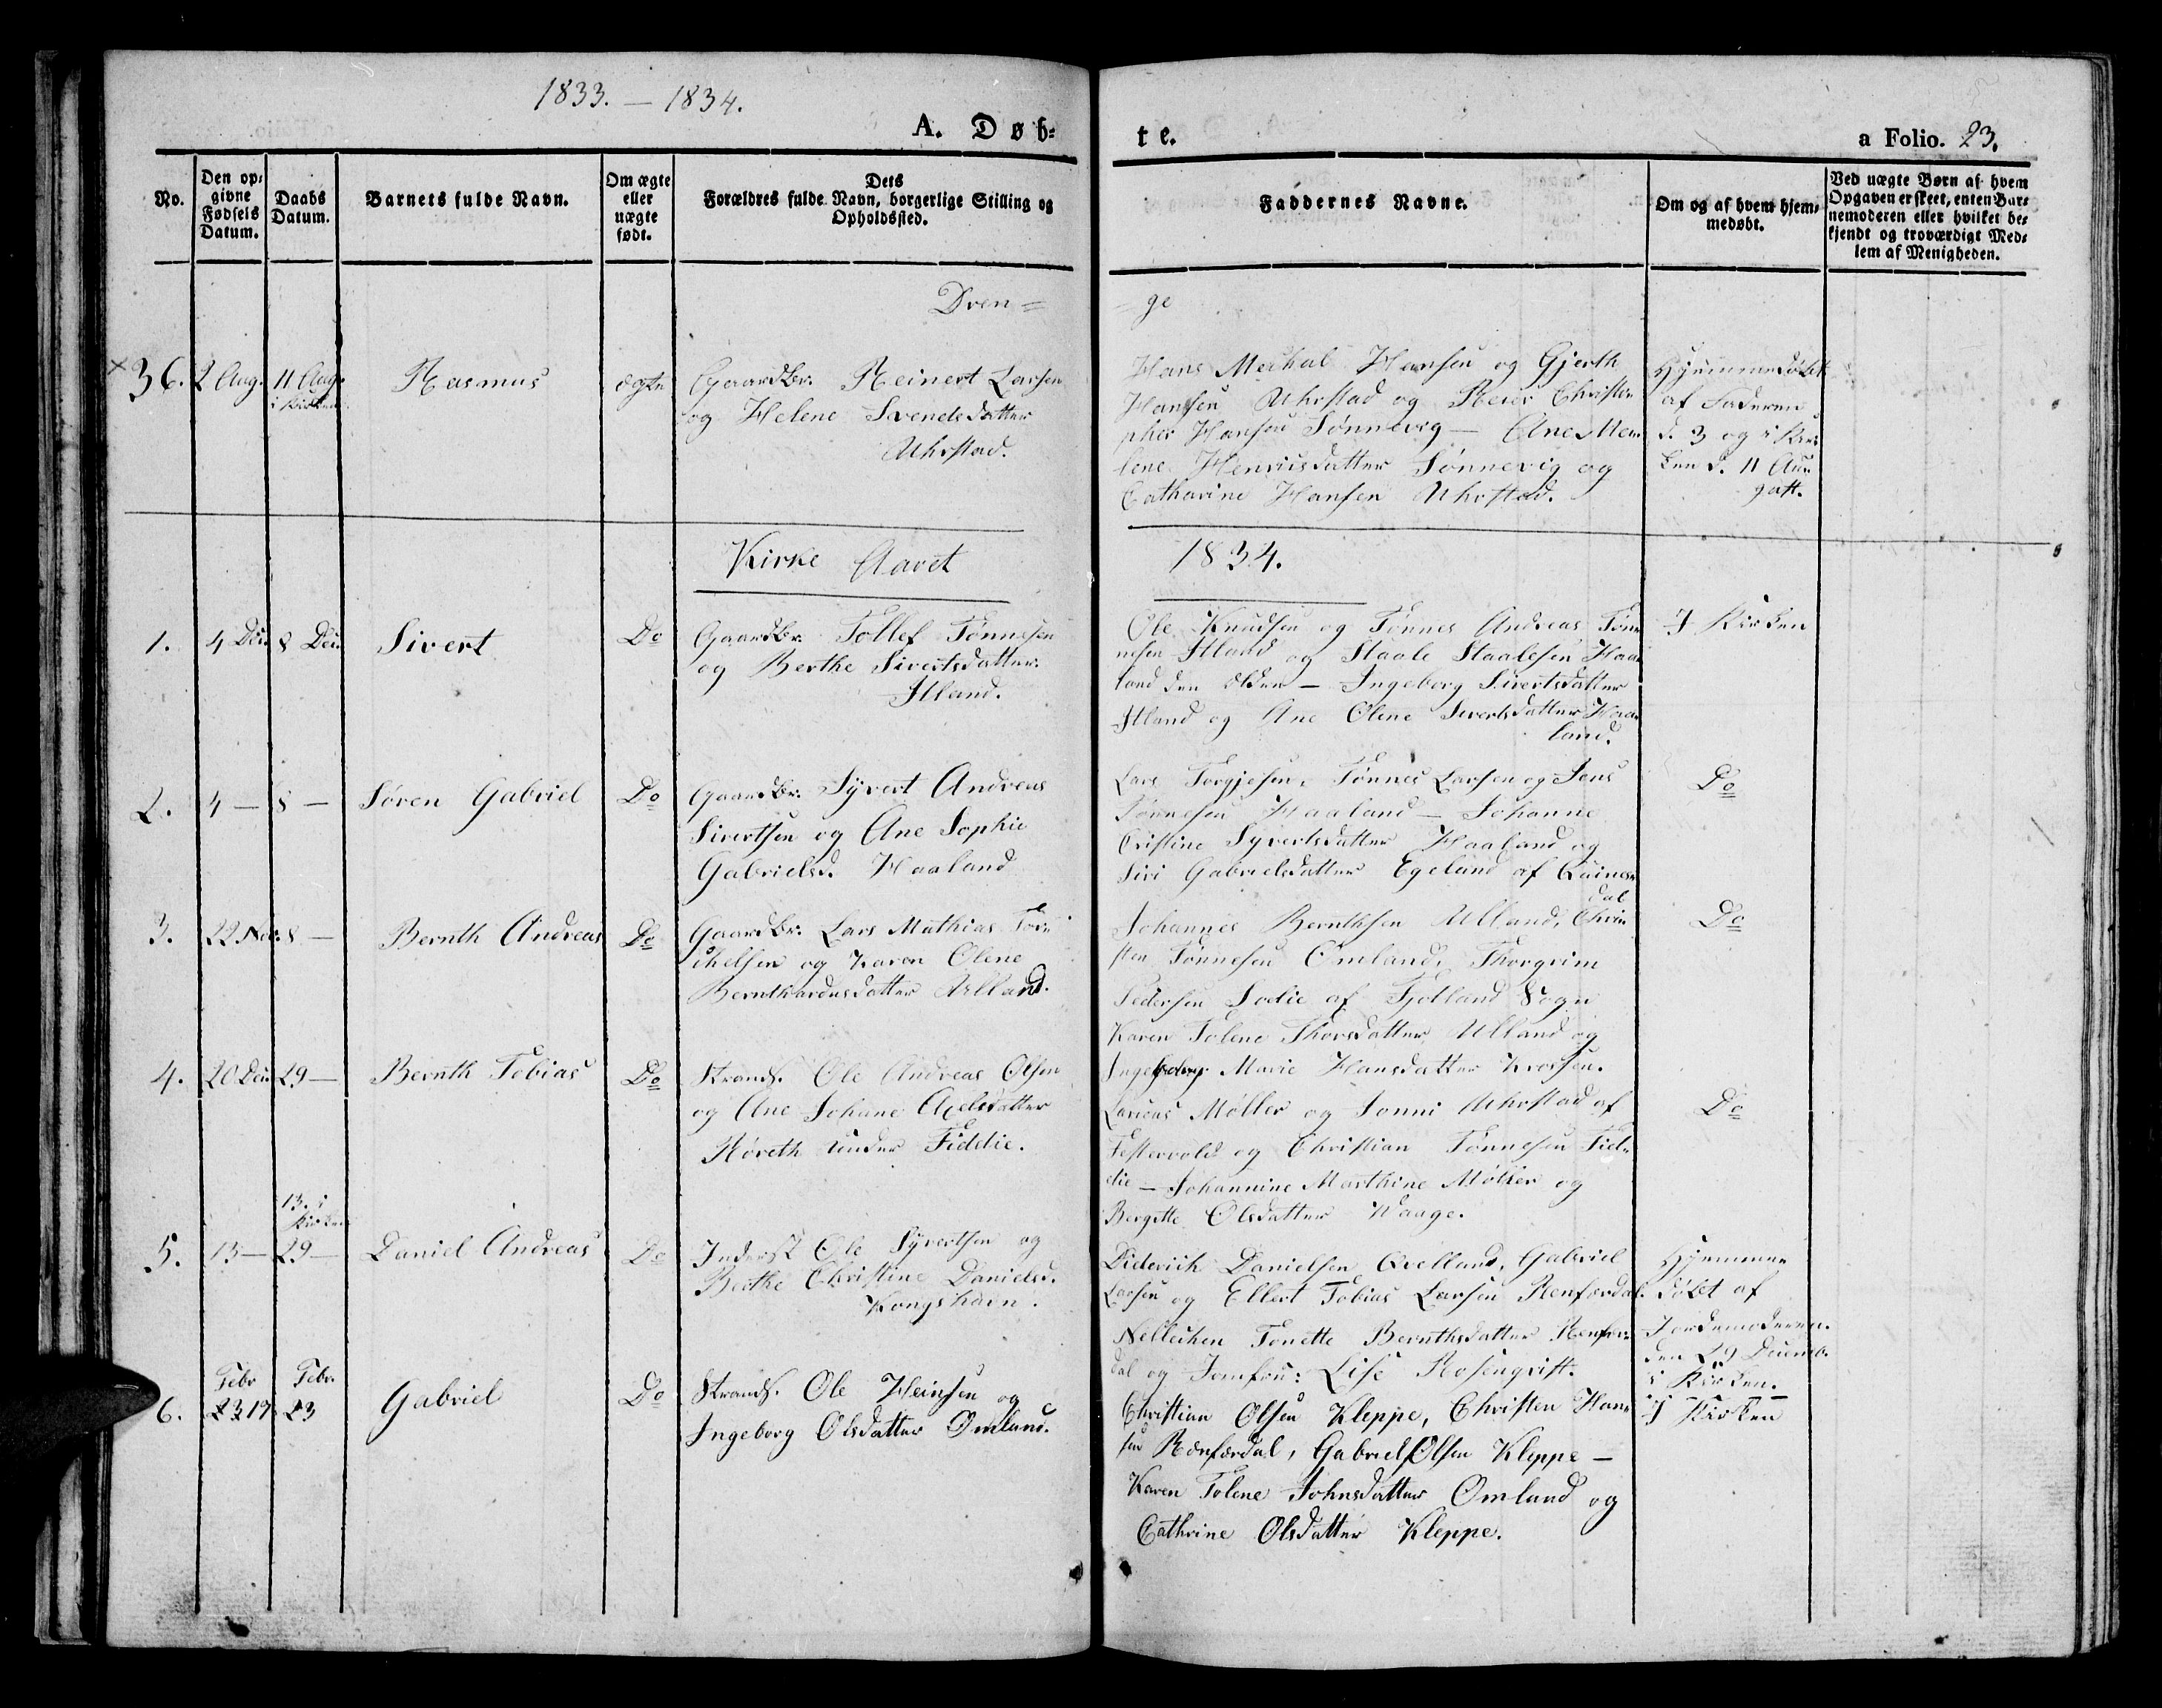 1833. — 1834.
A. Døb-
te.
a Folio. 23.
No.
Den op-
givne
Fødsels
Datum.
Daabs
Datum.
Barnets fulde Navn.
Om ægte
eller
uægte
født.
Dets
Forældres fulde Navn, borgerlige Stilling og
Opholdssted.
Faddernes Navne.
Om og af hvem hjem-
medøbt.
Ved uægte Børn af hvem
Opgaven er skeet, enten Bar-
nemoderen eller hvilket be-
kjendt og troværdigt Med-
lem af Menigheden.
Dren=
=ge
36.
2 Aug.
11 Aug.
i Kirken
Rasmus
ægte
Gaardbr. Reinert Larsen
og Helene Svendsdatter
Uhrstad.
Hans Mechal Hansen og Gjerth
Hansen Uhrstad og Reier Christo-
pher Hansen Sønnevig — Ane Ma-
lene Henricsdatter Sønnevig og
Catharine Hansen Uhrstad.
Hjemmedøbt
af Faderen
d. 3 og i Kir-
ken d. 11 Au-
gust.
Kirke Aaret
1834.
1.
4 Dec.
8 Dec.
Sivert
Do
Gaardbr. Tollef Tønnesen
og Berthe Sivertsdatter
Itland.
Ole Knudsen og Tønnes Andreas Tøn-
nesen Itland og Staale Staalesen Haa-
land den ælder — Ingeborg Sivertsdatter
Itland og Ane Olene Sivertsdatter Haa-
land.
I Kirken
2.
4 —
8 —
Søren Gabriel
Do
Gaardbr. Syvert Andreas
Sivertsen og Ane Sophie
Gabrielsd. Haaland
Lars Torgjesen, Tønnes Larsen og Jens
Tønnesen Haaland — Johanne
Cristine Syvertsdatter Haaland og
Siri Gabrielsdatter Egeland af Quines-
dal
Do
3.
22 Nov.
8 —
Bernth Andreas
Do
Gaardbr. Lars Mathias Tor-
kelsen og Karen Olene
Bernthardusdatter Ulland.
Johannes Bernthsen Ulland, Chri-
sten Tønnesen Omland, Thorgrim
Pedersen Lodie af Fjotland Sogn
Karen Tolene Thorsdatter Ulland og
Ingeborg Marie Hansdatter Krossen.
Do
4.
20 Dec.
29 —
Bernth Tobias
Do
Strands. Ole Andreas Olsen
og Ane Johane Axelsdatter
Røreth under Fiddie.
Møller og Jonni Uhrstad af
Festervold og Christian Tønnesen Fid-
die — Johannine Marthine Møller og
Bergitte Olsdatter Waage.
Do
5.
13 —
13. i
Kirken
29 —
Daniel Andreas
Do
Inderst Ole Syvertsen og
Berthe Christine Danielsd.
Kongshavn.
Diderich Danielsen Qvelland, Gabriel
Larsen og Ellert Tobias Larsen Renfærdal.
Nellechen Tonette Bernthsdatter Renfær-
dal og Jomfru: Lise Rosenqvist.
Hjemme
døbt af
Jordemoderen
den 29 Decemb.
i Kirken.
6.
Febr
23 19
Febr.
23
Gabriel
Do
Strands. Ole Heinsen og
Ingeborg Olsdatter Omland.
Christian Olsen Kleppe, Christen Han-
sen Renfærdal, Gabriel Olsen Kleppe —
Karen Tolene Johnsdatter Omland og
Cathrine Olsdatter Kleppe.
I Kirken